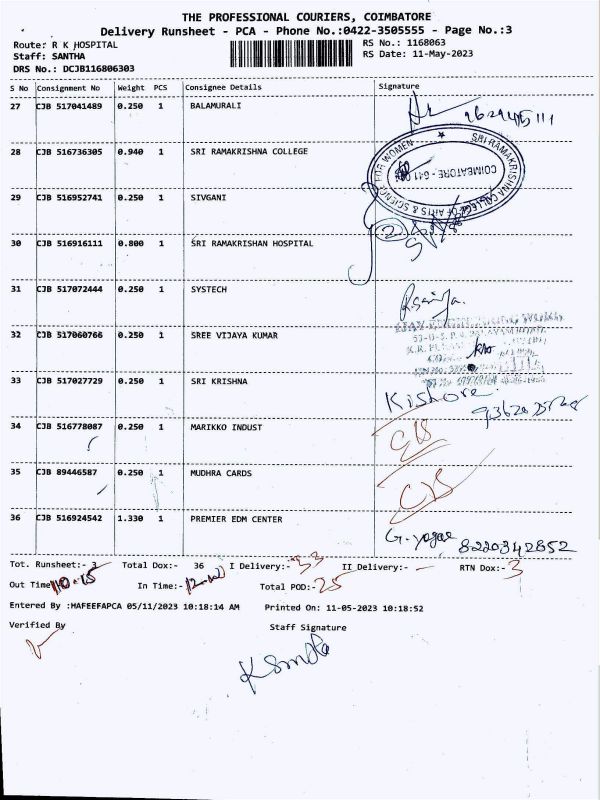 THE PROFESSIONAL COURIERS, COIMBATORE
Delivery Runsheet - PCA - Phone No.:0422-3505555 - Page No.:3
Route: R K HOSPITAL RS No.: 1168063
Staff: SANTHA RS Date: 11-May-2023
DRS No.: DCJB116806303
S No Consignment No Weight PCS Consignee Details Signature
27 CJB 517041489 0.250 1 BALAMURALI
28 CJB 516736305 0.940 1 SRI RAMAKRISHNA COLLEGE
SRI RAMAKRISHNA COLLEGE OF ARTS & SCIENCE FOR WOMEN
COIMBATORE - 641
29 CJB 516952741 0.250 1 SIVGANI
2
30 CJB 516916111 0.800 1 SRI RAMAKRISHAN HOSPITAL
31 CJB 517072444 0.250 1 SYSTECH
32 CJB 517060766 0.250 1 SREE VIJAYA KUMAR
33 CJB 517027729 0.250 1 SRI KRISHNA Kishore
34 CJB 516778087 0.250 1 MARIKKO INDUST
35 CJB 89446587 0.250 1 MUDHRA CARDS
36 CJB 516924542 1.330 1 PREMIER EDM CENTER 8220342852
Tot. Runsheet:- 3 Total Dox:- 36 I Delivery:- 33 II Delivery:- - RTN Dox:- 3
Out Time 10-15 In Time:- Total POD:- 25
Entered By :HAFEEFAPCA 05/11/2023 10:18:14 AM Printed On: 11-05-2023 10:18:52
Verified By Staff Signature